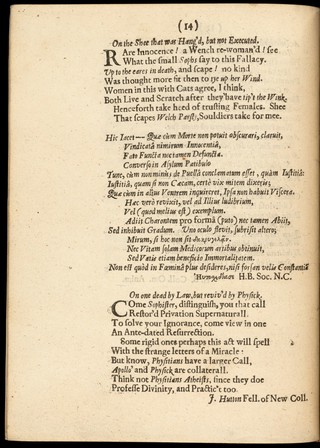 (14)
On the Shee that was Hang'd, but not Executed.
RAre Innocence! a Wench re-woman'd! see
What the small Sophs say to this Fallacy.
Up to the eares in death, and scape! no kind
Was thought more fit then to tye up her Wind.
Women in this with Cats agree, I think,
Both Live and Scratch after they'have tip't the Wink.
Henceforth take heed of trusting Females. Shee
That scapes Welch Parsly, Souldiers take for mee.
Hic Jacet—— Quæ cùm Morte non potuit obscurari, claruit,
Vindicatâ nimirum Innocentiâ,
Fato Functa nec tamen Defuncta.
Conversio in Asylum Patibulo
Tunc, cùm nonnimis de Puellâ conclamatum esset, quàm Justitiâ:
Justitiâ, quam si non Cæcam, certè vix mitem dixeris;
Quæ cùm in alius Ventrem inquireret, Ipsa non habuit Viscera.
Hæc verò revixit, vel ad Illius ludibrium,
Vel (quod melius est) exemplum.
Adiit Charontem pro formâ (puto) nec tamen Abiit,
Sed inhibuit Gradum. Uno oculo flevit, subrisit altero;
Mirum, si hoc non sit
Nec Vitam solam Medicorum artibus obtinuit,
Sed Vatis etiam beneficio Immortalitatem.
Non est quòd in Fœminâ plus desideres, nisi forsan velis Constantiã
H.B. Soc. N.C.
On one dead by Law, but reviv'd by Physick.
COme Sophister, distinguish, you that call
Restor'd Privation Supernaturall.
To solve your Ignorance, come view in one
An Ante-dated Resurrection.
Some rigid ones perhaps this act will spell
With the strange letters of a Miracle:
But know, Physitians have a larger Call,
Apollo' and Physick are collaterall.
Think not Physitians Atheists, since they doe
Professe Divinity, and Practic't too.
J. Hutton Fell. of New Coll.